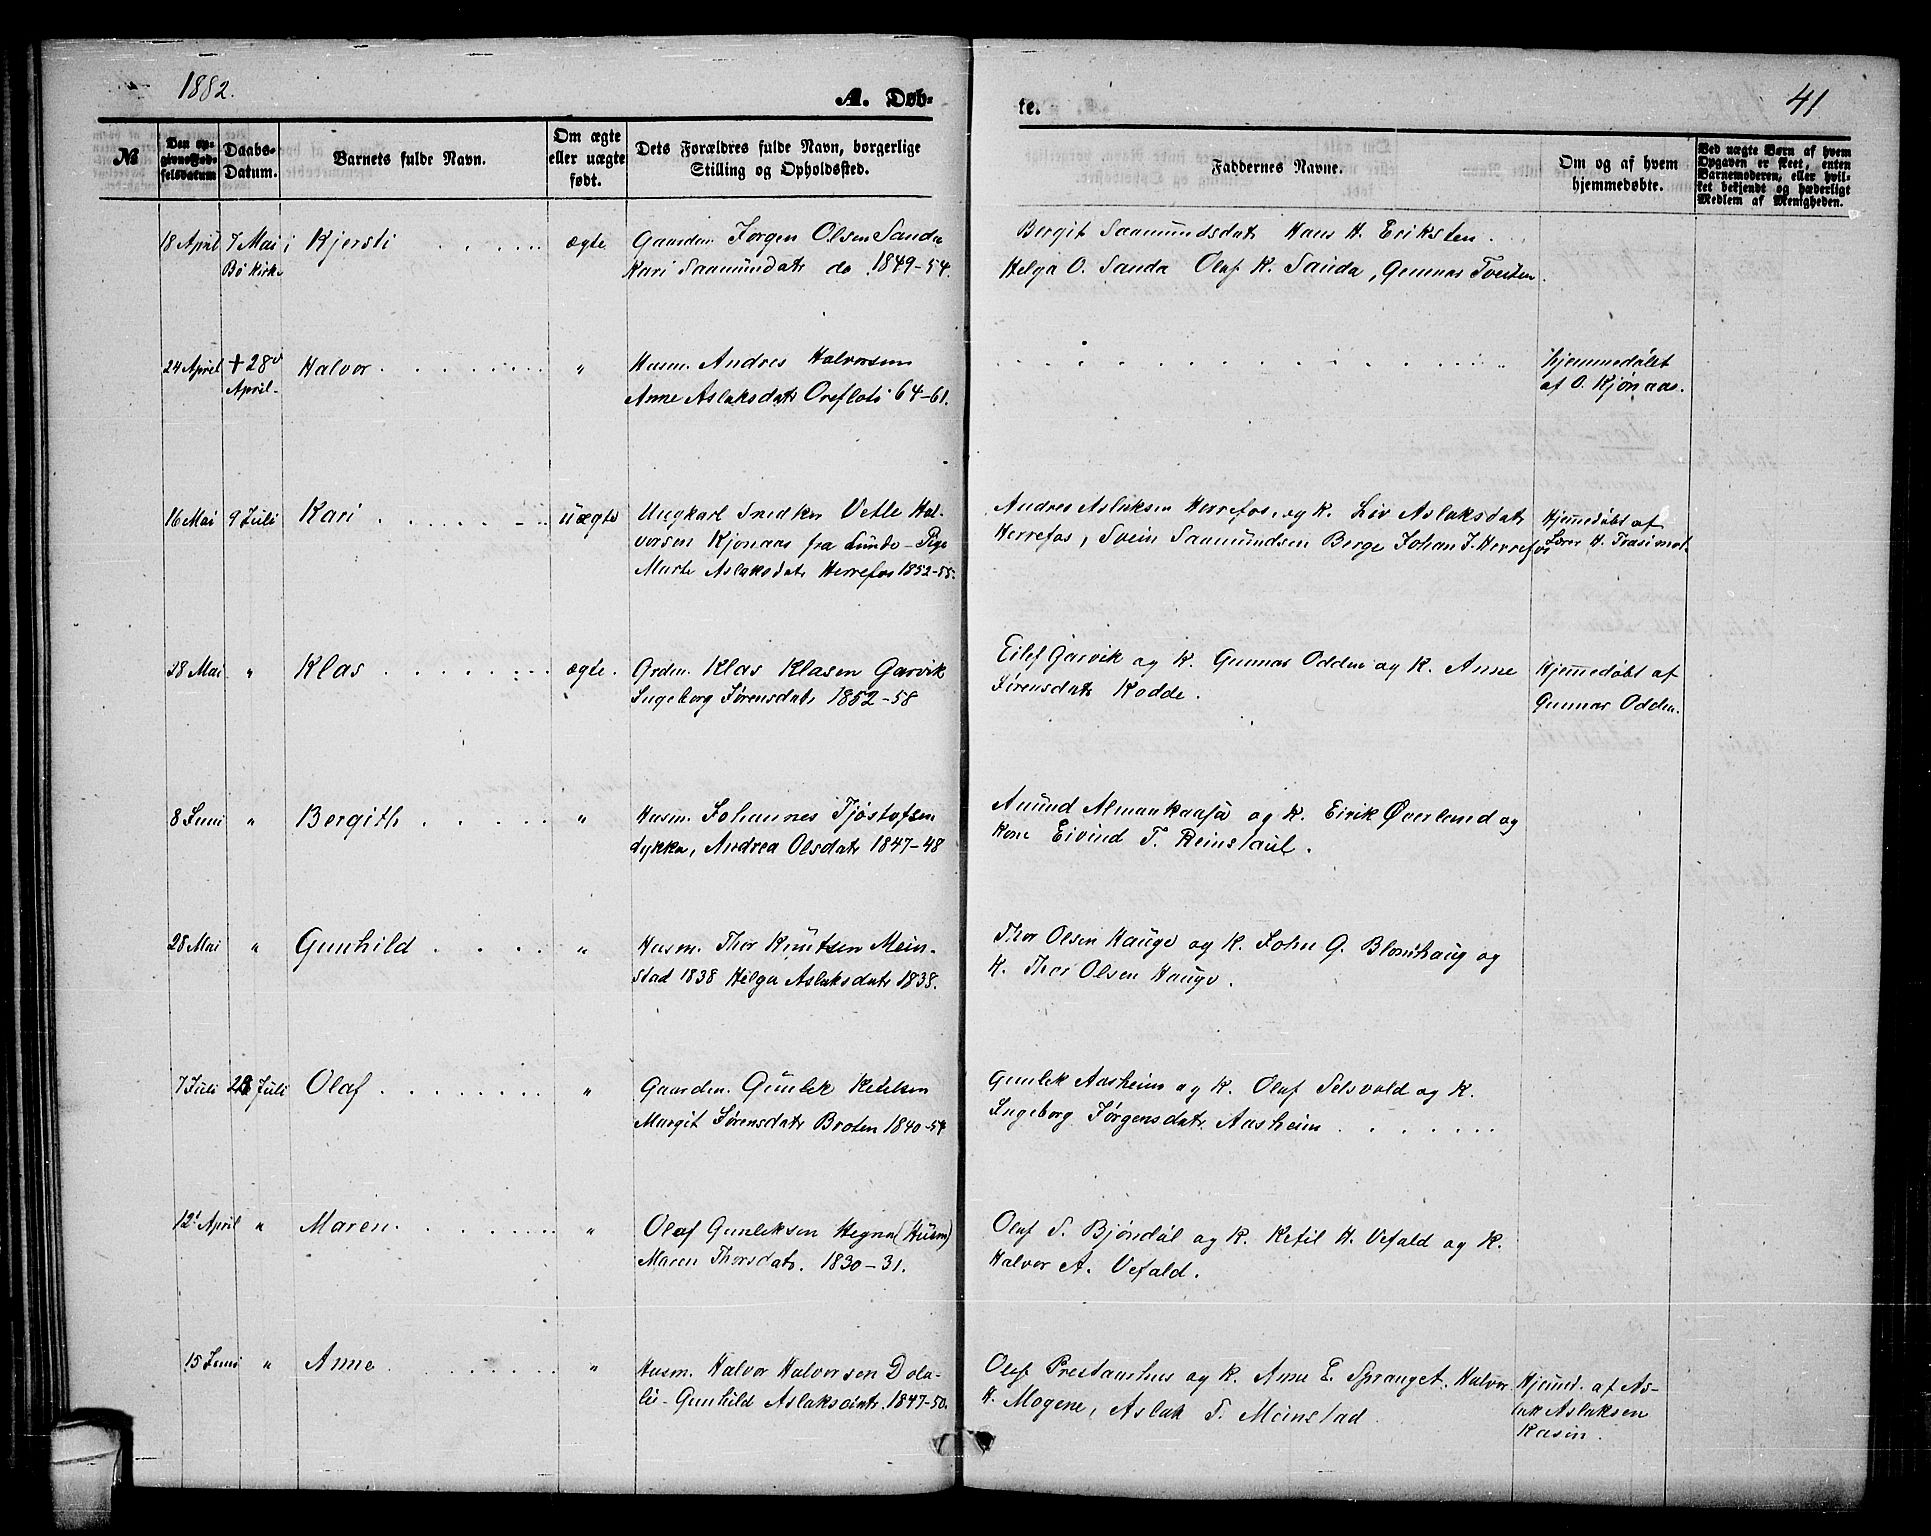 1882.
A. Døb-
te.
41
№
Den op-
givne Fød-
selsdatum
Daabs-
Datum.
Barnets fulde Navn.
Om ægte
eller uægte
født.
Dets Forældres fulde Navn, borgerlige
Stilling og Opholdssted.
Faddernes Navne.
Om og af hvem
hjemmedøbte.
Ved uægte Børn af hvem
Opgaven er skeet, enten
Barnemoderen, eller hvil-
ket bekjendt og hæderligt
Medlem af Menigheden.
18 April 7 Mai i Kjersti ægte Gaardm. Jørgen Olsen Sanda
Bø Kirke Kari Saamundatr do 1849-54.
Bergit Saamundsdatr Hans H. Eriksten.
Helga O. Sanda Olaf K. Sanda, Gunnar Tveiten.
24 April + 28 Halvor " Husm. Andres Halvorsen
April. Anne Aslaksdatr Oreflot 64-61.
Hjemmedøbt
af O. Kjønaas.
16 Mai 9 Juli Kari uægte Ungkarl Snedker Vetle Hal-
vorsen Kjonaas fra Lunde - Pige
Marte Aslaksdatr Herrefos 1852-55.
Andres Aslaksen Herrefos og K. Liv Aslaksdatr
Herrefos, Svein Saamundsen Berge Johan J. Herrefos
Hjemedøbt af
H.
28 Mai " Klas ægte. Grdm. Klas Klasen Garvik
Ingeborg Sørensdatr 1852-58
Eilef Garvik og K. Gunnar Odden og K. Anne
Sørensdatr Kodde.
Hjemedøbt af
Gunnar Odden.
8 Juni " Bergith " Husm. Johannes Tjøstofsen
dykkn, Andrea Olsdatr 1847-48
Amund og K. Eirik Øverland og
Kone Eivind T. Reinstaul.
28 Mai " Gunhild " Husm. Thor Knutsen Mein-
stad 1838 Helga Aslaksdatr 1838.
Thor Olsen Hauge og K. John G. Blomhaug og
H. Thor Olsen Hauge.
7 Juli 23 Juli Olaf " Gaardm. Gunlek Ketilsen
Margit Sørensdatr Broten 1840-54
Gunlek Aasheim og K. Olaf Selsvold og K.
Ingeborg Jørgensdatr Aasheim
12 April " Maren. " Olaf Gunleksen Hegna (Husm)
Maren Thorsdatr. 1830-31.
Olaf S. Bjøndal og K. Ketil H. Vefald og K.
Halvor A. Vefald.
15 Juni " Anne " Husm. Halvor Halvorsen Dola-
lii - Gunhild Aslaksdatr. 1847-50.
Olaf Prestaarhus og K. Anne E. Spranget. Halvor
H. Mogene, Aslak T. Meinstad.
Hjemd. af As-
lak Aslaksen
Kasin.